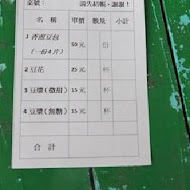 桌號： 請先結帳，謝謝！
名 稱 單價 數量 小計
1 香煎豆包 50 元 份
(一份4片)
2 豆花 25 元 杯
3 豆漿 (微甜) 15 元 杯
4 豆漿 (無糖) 15 元 杯
合 計